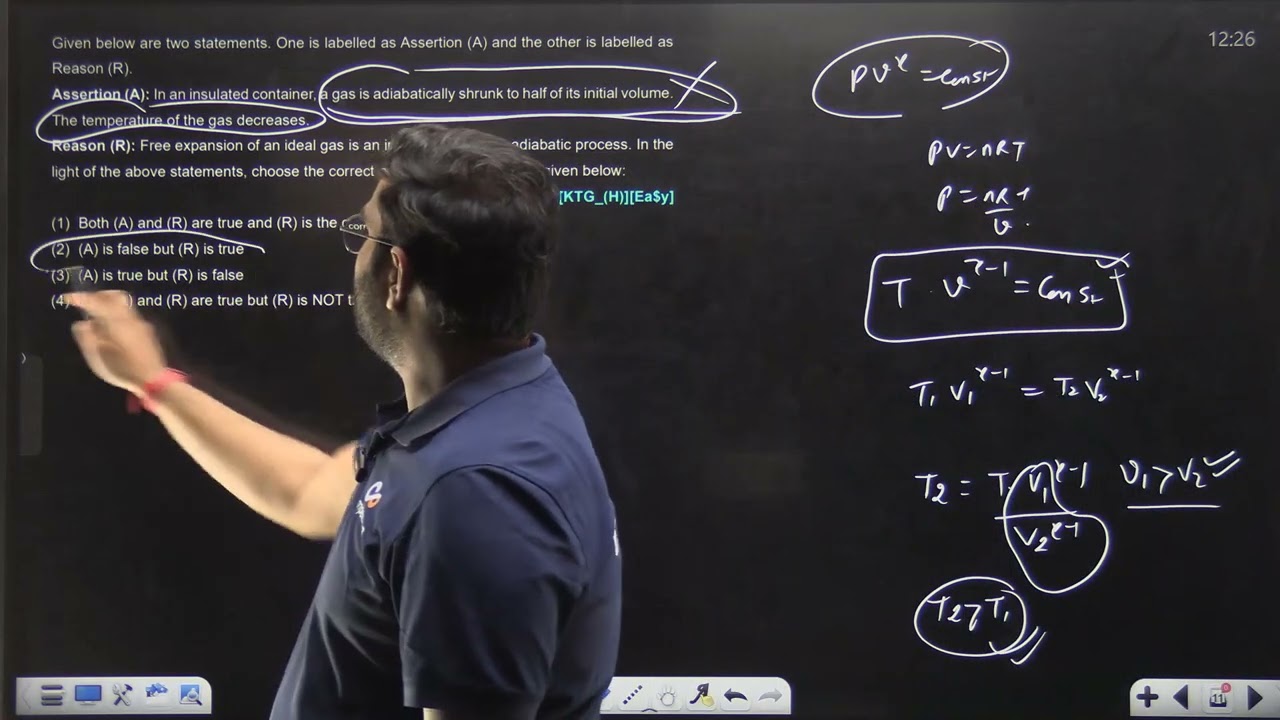 12:26
Given below are two statements. One is labelled as Assertion (A) and the other is labelled as
Reason (R).
Assertion (A): In an insulated container, a gas is adiabatically shrunk to half of its initial volume.
The temperature of the gas decreases.
Reason (R): Free expansion of an ideal gas is an adiabatic process. In the
light of the above statements, choose the correct given below:
[KTG_(H)][Ea$y]
(1) Both (A) and (R) are true and (R) is the corr
(2) (A) is false but (R) is true
(3) (A) is true but (R) is false
(4) and (R) are true but (R) is NOT
PV^γ = Const
PV = nRT
P = nRT / V
T · V^γ-1 = Const
T₁ V₁^γ-1 = T₂ V₂^γ-1
T₂ = T₁ V₁^γ-1 / V₂^γ-1 V₁ > V₂
T₂ > T₁
11